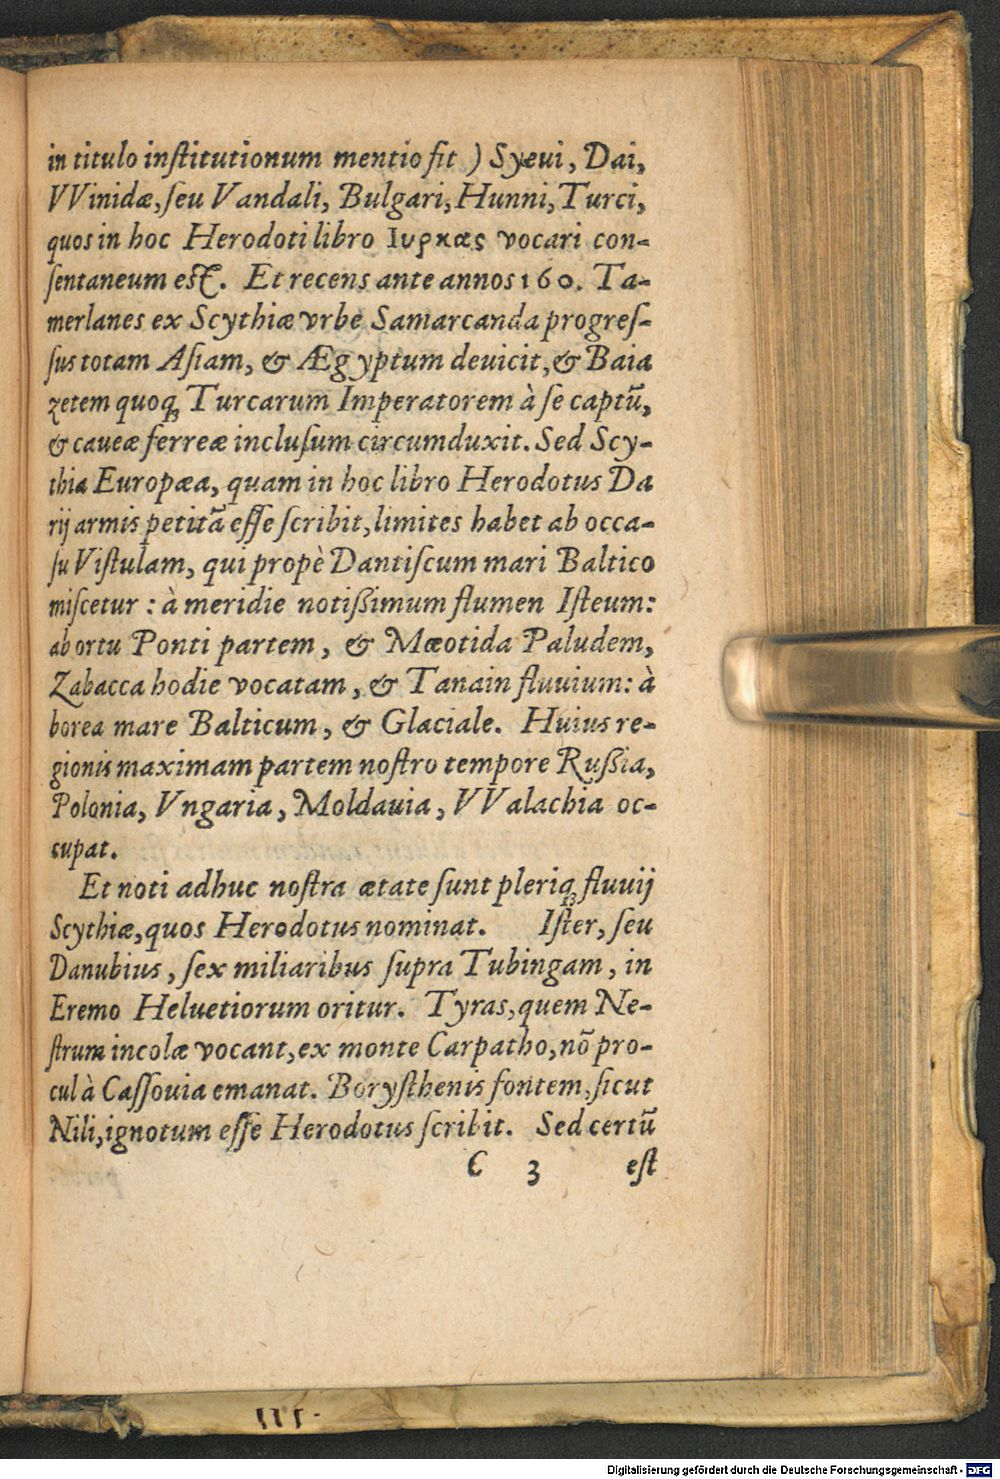 in titulo inſtitutionum mentio fit ) Syeui, Dai,
VVinidæ, ſeu Vandali, Bulgari, Hunni, Turci,
quos in hoc Herodoti libro Ιυρκας vocari con-
ſentaneum eſt. Et recens ante annos 160. Ta-
merlanes ex Scythiæ vrbe Samarcanda progreſ-
ſus totam Aſiam, & Ægyptum deuicit, & Baia
zetem quoq; Turcarum Imperatorem à ſe captū,
& caueæ ferreæ incluſum circumduxit. Sed Scy-
thia Europæa, quam in hoc libro Herodotus Da
rij armis petitā eſſe ſcribit, limites habet ab occa-
ſu Viſtulam, qui propè Dantiſcum mari Baltico
miſcetur : à meridie notißimum flumen Iſteum:
ab ortu Ponti partem, & Mæotida Paludem,
Zabacca hodie vocatam, & Tanain fluuium: à
borea mare Balticum, & Glaciale. Huius re-
gionis maximam partem noſtro tempore Rußia,
Polonia, Vngaria, Moldauia, VValachia oc-
cupat.
Et noti adhuc noſtra ætate ſunt pleriq; fluuij
Scythiæ, quos Herodotus nominat. Iſter, ſeu
Danubius, ſex miliaribus ſupra Tubingam, in
Eremo Heluetiorum oritur. Tyras, quem Ne-
ſtrum incolæ vocant, ex monte Carpatho, nō pro-
cul à Caſſouia emanat. Boryſthenis fontem, ſicut
Nili, ignotum eſſe Herodotus ſcribit. Sed certū
C 3 eſt
Digitalisierung gefördert durch die Deutsche Forschungsgemeinschaft - DFG